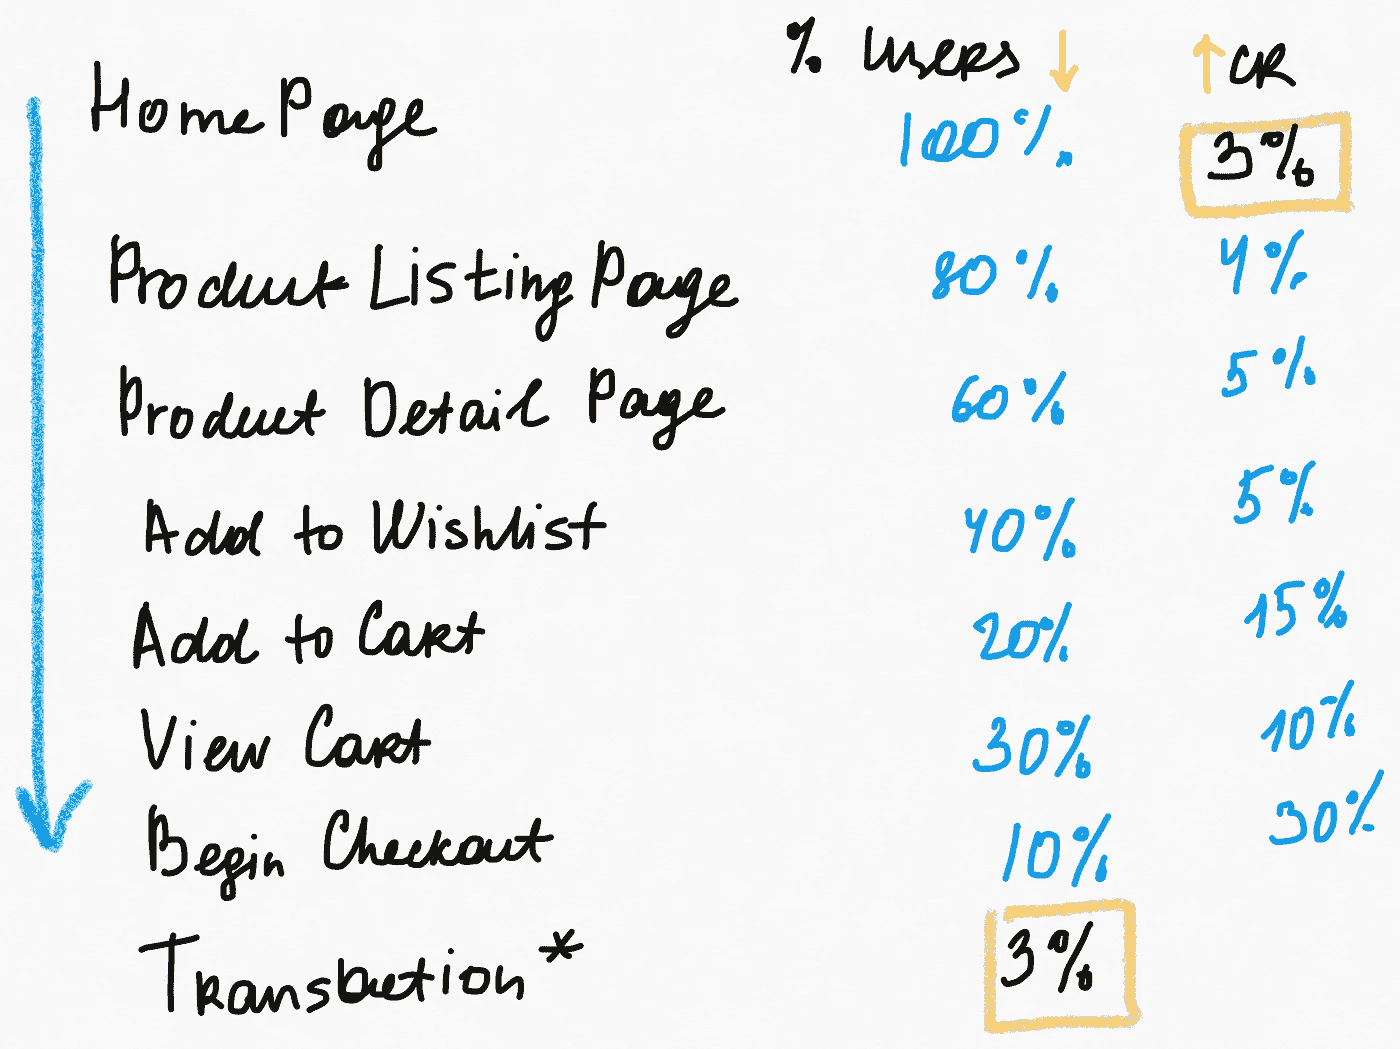 % users ↓ ↑ CR
HomePage 100% 3%
Product Listing Page 80% 4%
Product Detail Page 60% 5%
Add to Wishlist 40% 5%
Add to Cart 20% 15%
View Cart 30% 10%
Begin Checkout 10% 30%
Transaction * 3%